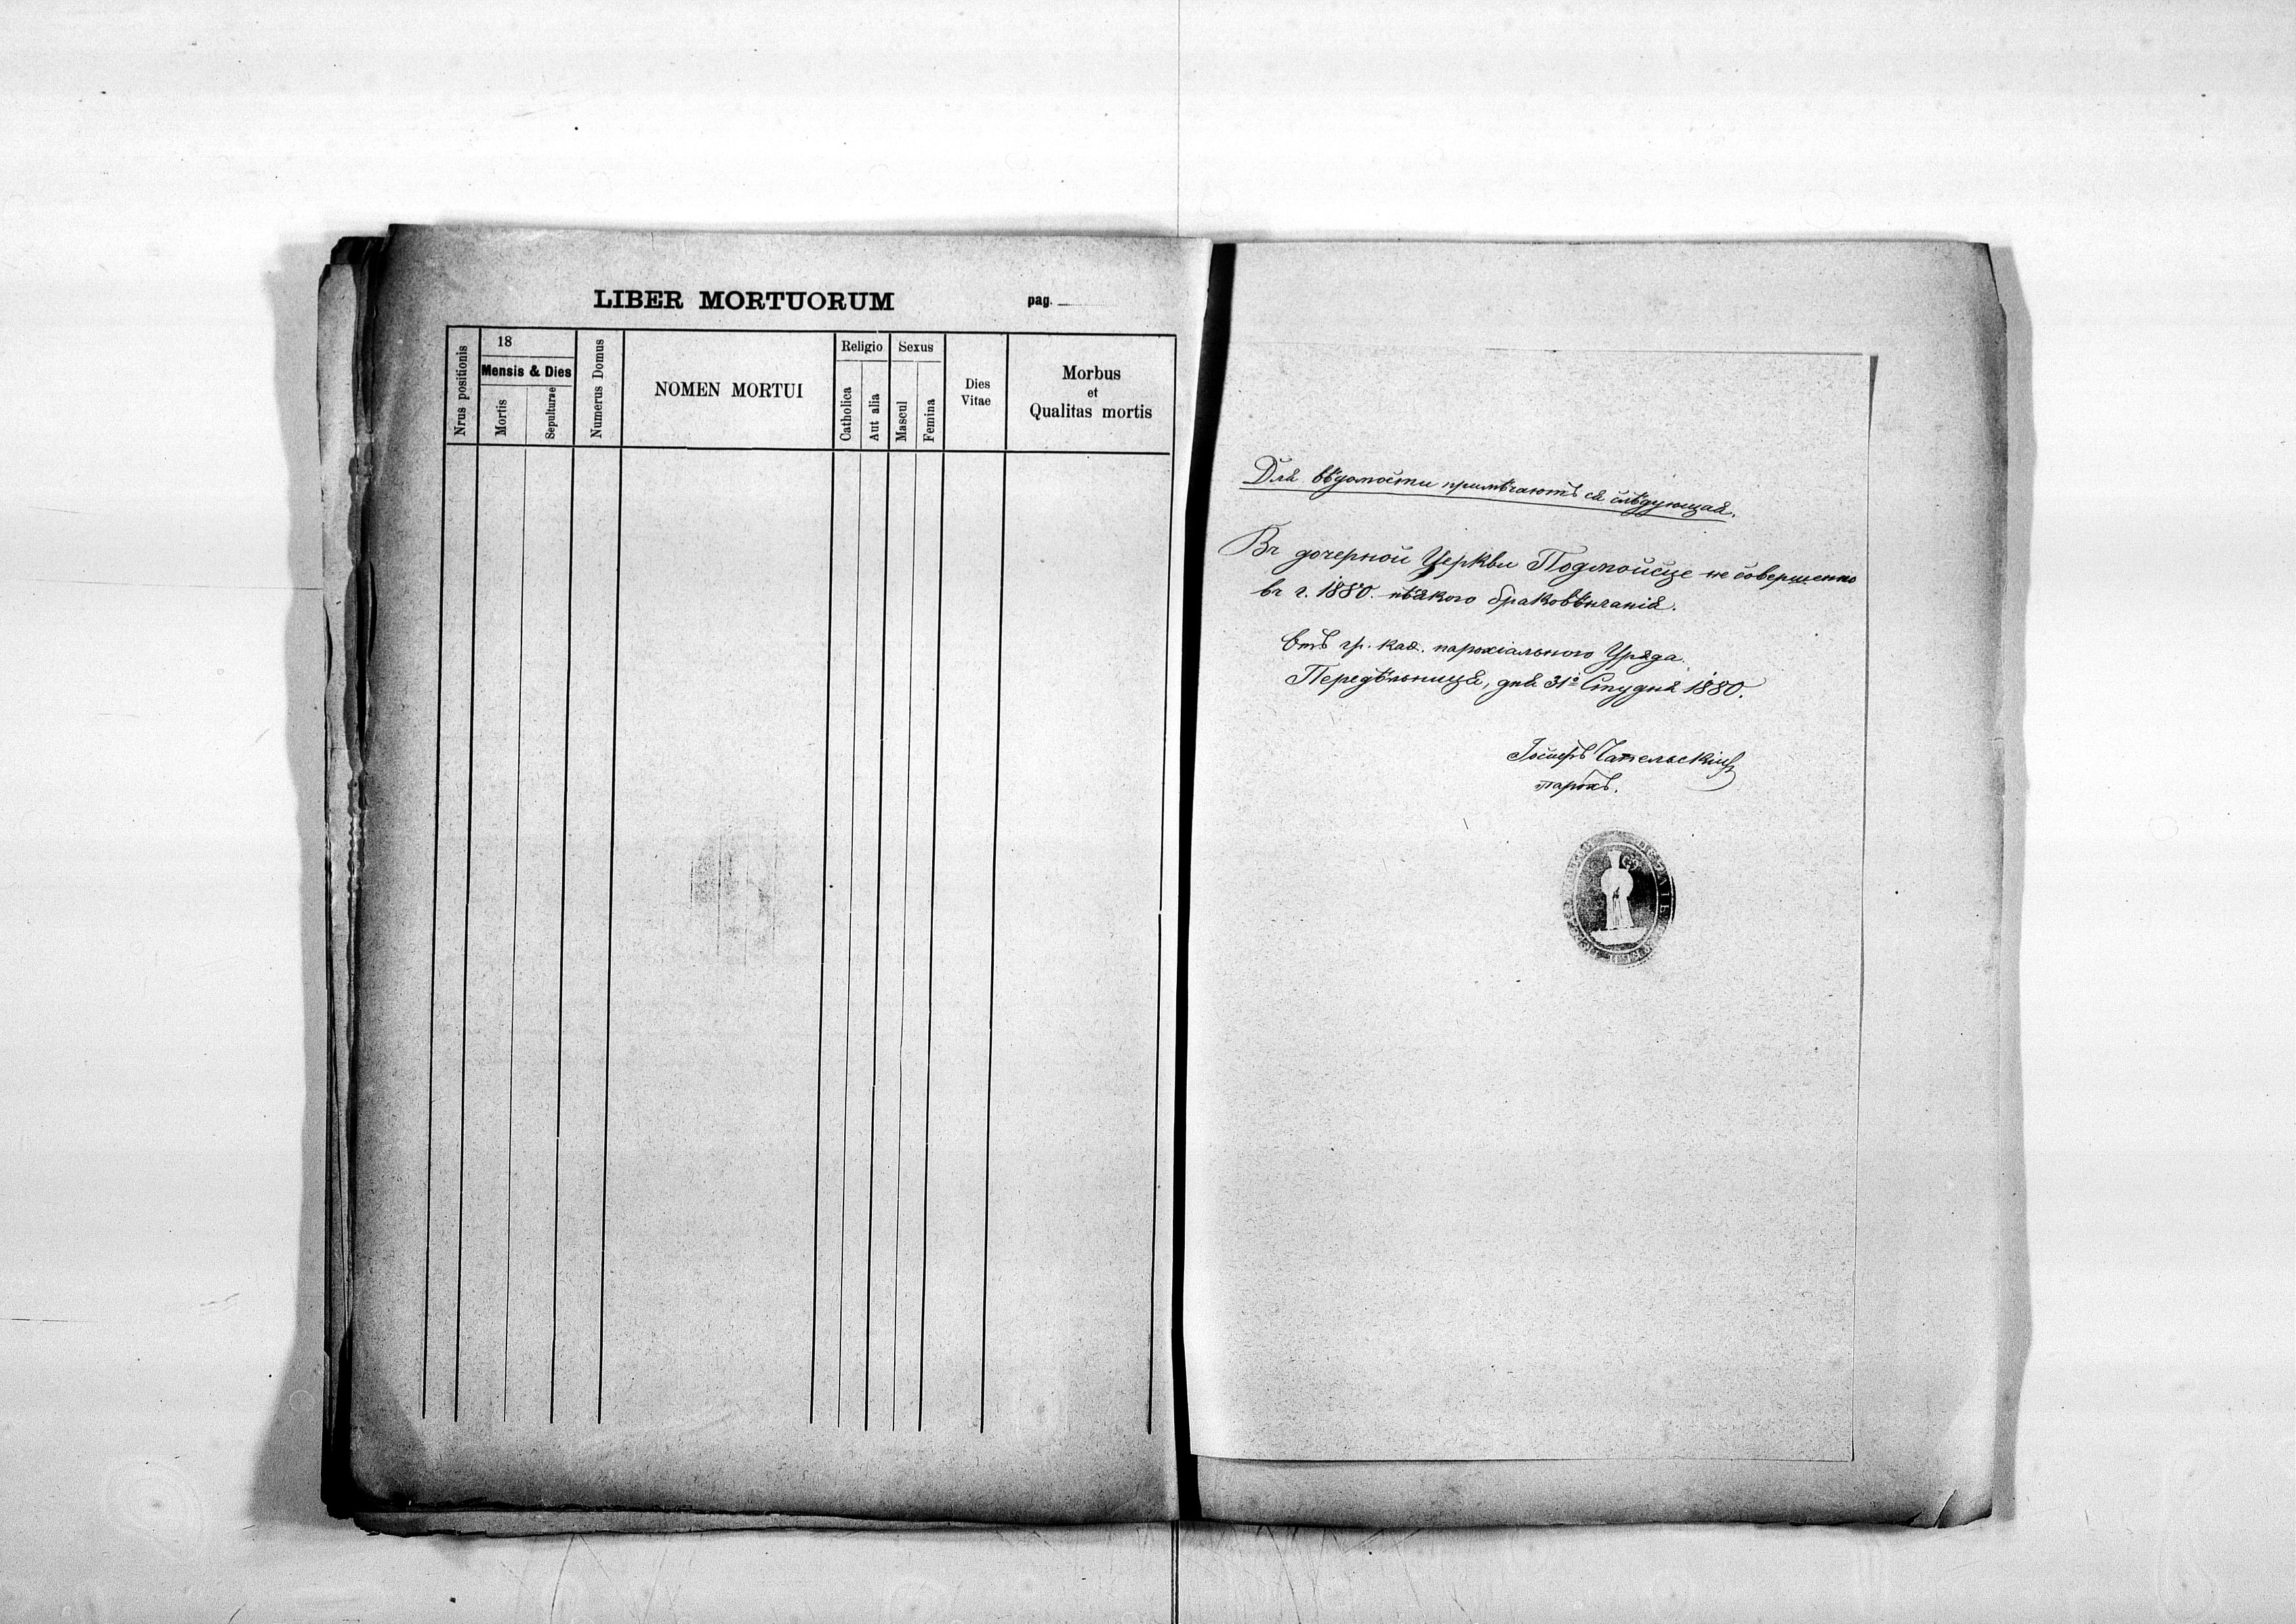 LIBER MORTUORUM
pag.
Nrus positionis
18
Mensis & Dies
Mortis
Sepulturae
Numerus Domus
NOMEN MORTUI
Religio
Catholica
Aut alia
Sexus
Mascul
Femina
Dies
Vitae
Morbus
et
Qualitas mortis
Для вѣдомости примѣчаютъ ся слѣдующая.
Въ дочерной Церкви Подмойсце не совершенно
въ г. 1880. нѣякого браковѣнчанія.
Отъ гр. каѳ. парохіального Уряда.
Передѣльница, дня 31º Студня 1880.
Іосифъ
парохъ.